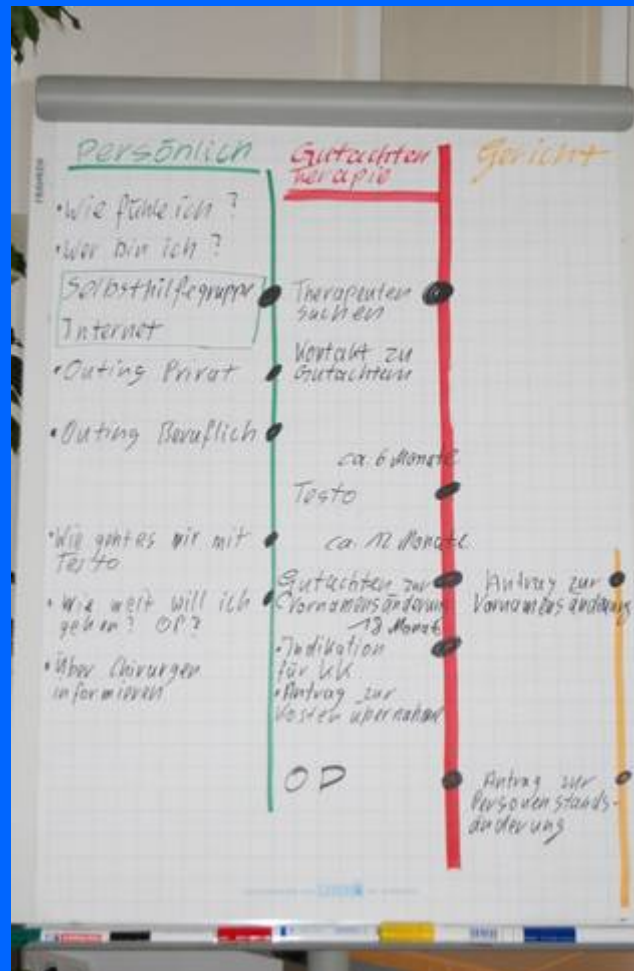 Persönlich
• Wie fühle ich?
• Wer bin ich?
Selbsthilfegruppe
Internet
• Outing Privat
• Outing Beruflich
• Wie geht es mir mit
Testo
• Wie weit will ich
gehen? OP?
• Über Chirurgen
informieren
Gutachten
Therapie
Therapeuten
suchen
Kontakt zu
Gutachtern
ca. 6 Monate
Testo
ca. 12 Monate
Gutachten zur
Vornamensänderung
18 Monat
• Indikation
für KK
• Antrag zur
Kostenübernahme
OP
Gericht
Antrag zur
Vornamensänderung
Antrag zur
Personenstands-
änderung